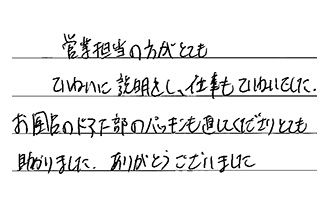 営業担当の方がとても
ていねいに説明をし、仕事もていねいでした.
お風呂のドア下部のパッキンも直してくださりとても
助かりました. ありがとうございました